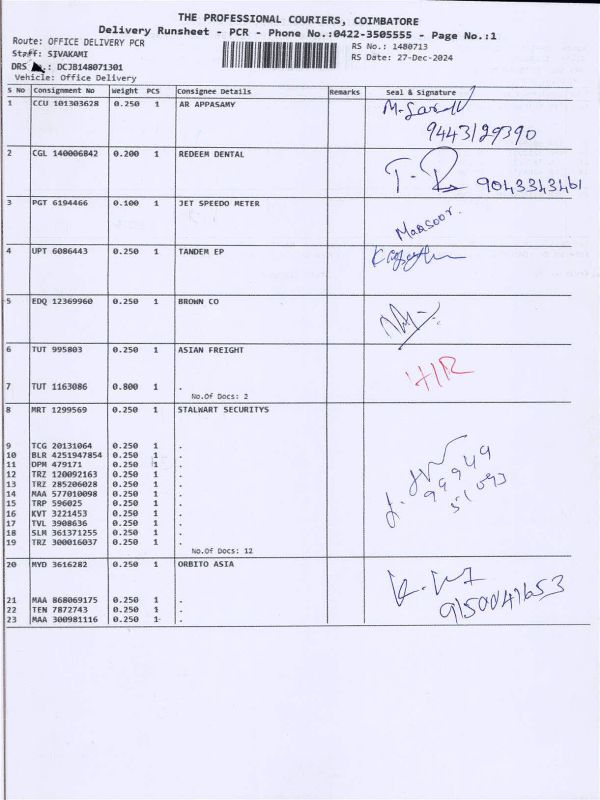 THE PROFESSIONAL COURIERS, COIMBATORE
Delivery Runsheet - PCR - Phone No.:0422-3505555 - Page No.:1
Route: OFFICE DELIVERY PCR
RS No.: 1480713
Staff: SIVAKAMI
RS Date: 27-Dec-2024
DRS : DCJB148071301
Vehicle: Office Delivery
S No Consignment No Weight PCS Consignee Details Remarks Seal & Signature
1 CCU 101303628 0.250 1 AR APPASAMY
9443129390
2 CGL 140006842 0.200 1 REDEEM DENTAL
9043343461
3 PGT 6194466 0.100 1 JET SPEEDO METER
Mansoor.
4 UPT 6086443 0.250 1 TANDEM EP
5 EDQ 12369960 0.250 1 BROWN CO
6 TUT 995803 0.250 1 ASIAN FREIGHT
H/R
7 TUT 1163086 0.800 1 .
No.Of Docs: 2
8 MRT 1299569 0.250 1 STALWART SECURITYS
9 TCG 20131064 0.250 1 .
10 BLR 4251947854 0.250 1 .
11 DPM 479171 0.250 1 .
12 TRZ 120092163 0.250 1 .
13 TRZ 285206028 0.250 1 .
14 MAA 577010098 0.250 1 .
15 TRP 596025 0.250 1 .
16 KVT 3221453 0.250 1 .
17 TVL 3908636 0.250 1 .
18 SLM 361371255 0.250 1 .
19 TRZ 300016037 0.250 1 .
99949
51093
No.Of Docs: 12
20 MYD 3616282 0.250 1 ORBITO ASIA
21 MAA 868069175 0.250 1 .
22 TEN 7872743 0.250 1 .
23 MAA 300981116 0.250 1 .
9150041653